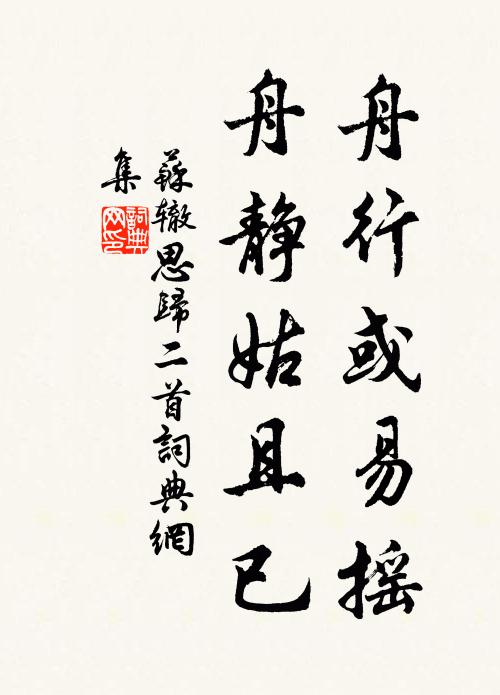 舟行或易摇
舟静姑且已
蘇辙思歸二首詞典網
集
詞典
网印